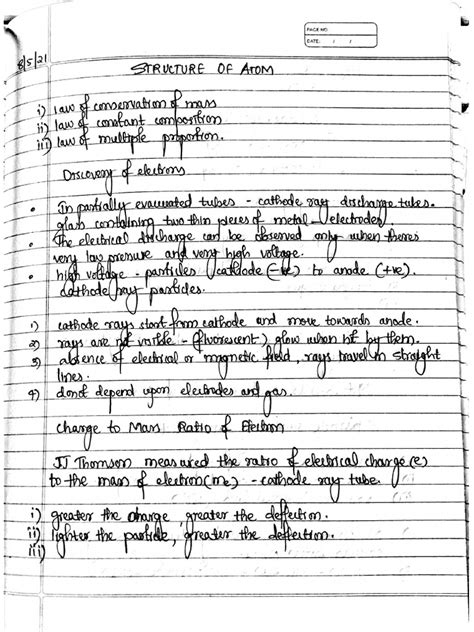 PAGE NO.
DATE: / /
8/5/21
STRUCTURE OF ATOM
i) law of conservation of mass
ii) law of constant composition
iii) law of multiple proportion.
Discovery of electrons
• In partially evacuated tubes - cathode ray discharge tubes.
glass containing two thin pieces of metal electrodes.
• The electrical discharge can be observed only when theres
very low pressure and very high voltage.
• high voltage - particles cathode (-ve) to anode (+ve).
cathode ray particles.
1) cathode rays start from cathode and move towards anode.
2) rays are not visible - (fluorescent) glow when hit by them.
3) absence of electrical or magnetic field, rays travel in straight
lines.
4) donot depend upon electrodes and gas.
Charge to Mass Ratio of Electron
JJ Thomson measured the ratio of electrical charge (e)
to the mass of electron (me) - cathode ray tube.
i) greater the charge, greater the deflection.
ii) lighter the particle, greater the deflection.
iii)